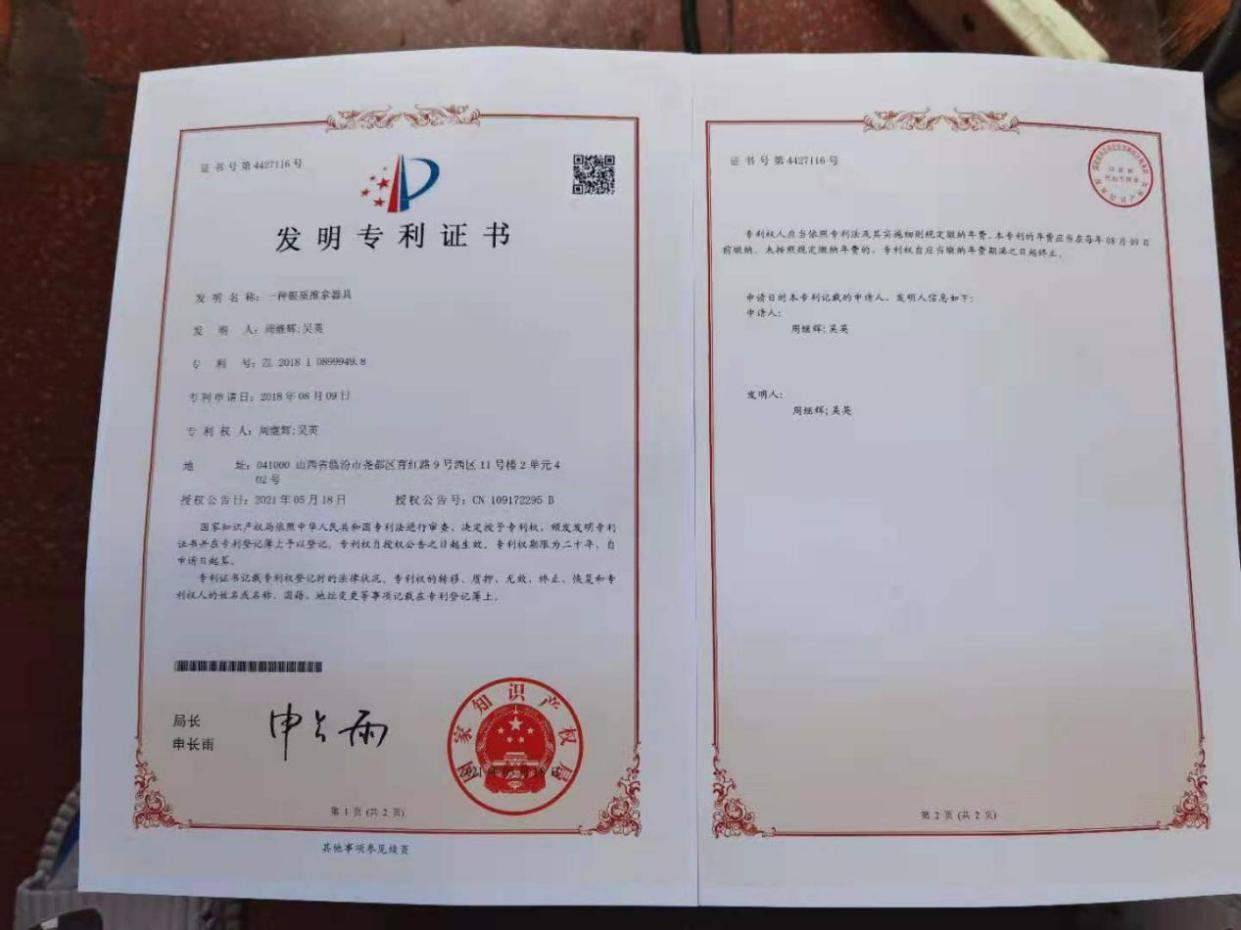 证书号第4427116号
发明专利证书
发 明 名 称：一种脏腑推拿器具
发 明 人：周继辉;吴英
专 利 号：ZL 2018 1 0899949.8
专利申请日：2018年08月09日
专 利 权 人：周继辉;吴英
地 址：041000 山西省临汾市尧都区育红路9号西区11号楼2单元4
02号
授权公告日：2021年05月18日 授权公告号：CN 109172295 B
国家知识产权局依照中华人民共和国专利法进行审查，决定授予专利权，颁发发明专利
证书并在专利登记簿上予以登记。专利权自授权公告之日起生效。专利权期限为二十年，自
申请日起算。
专利证书记载专利权登记时的法律状况。专利权的转移、质押、无效、终止、恢复和专
利权人的姓名或名称、国籍、地址变更等事项记载在专利登记簿上。
局长
申长雨
申长雨
国家知识产权局
第 1 页 (共 2 页)
其他事项参见续页
证书号第4427116号
专利权人应当依照专利法及其实施细则规定缴纳年费。本专利的年费应当在每年08月09日
前缴纳。未按照规定缴纳年费的，专利权自应当缴纳年费期满之日起终止。
申请日时本专利记载的申请人、发明人信息如下：
申请人：
周继辉;吴英
发明人：
周继辉;吴英
第 2 页 (共 2 页)